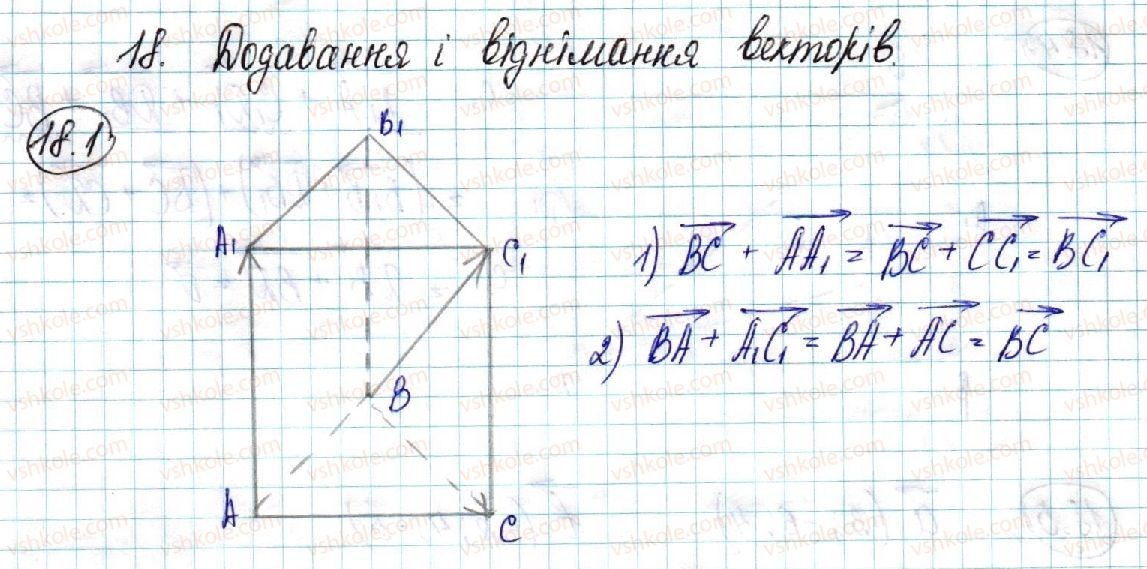 18. Додавання і віднімання векторів
18.1
B₁
A₁
C₁
B
A
C
1) BC + AA₁ = BC + CC₁ = BC₁
2) BA + A₁C₁ = BA + AC = BC
vshkole.com